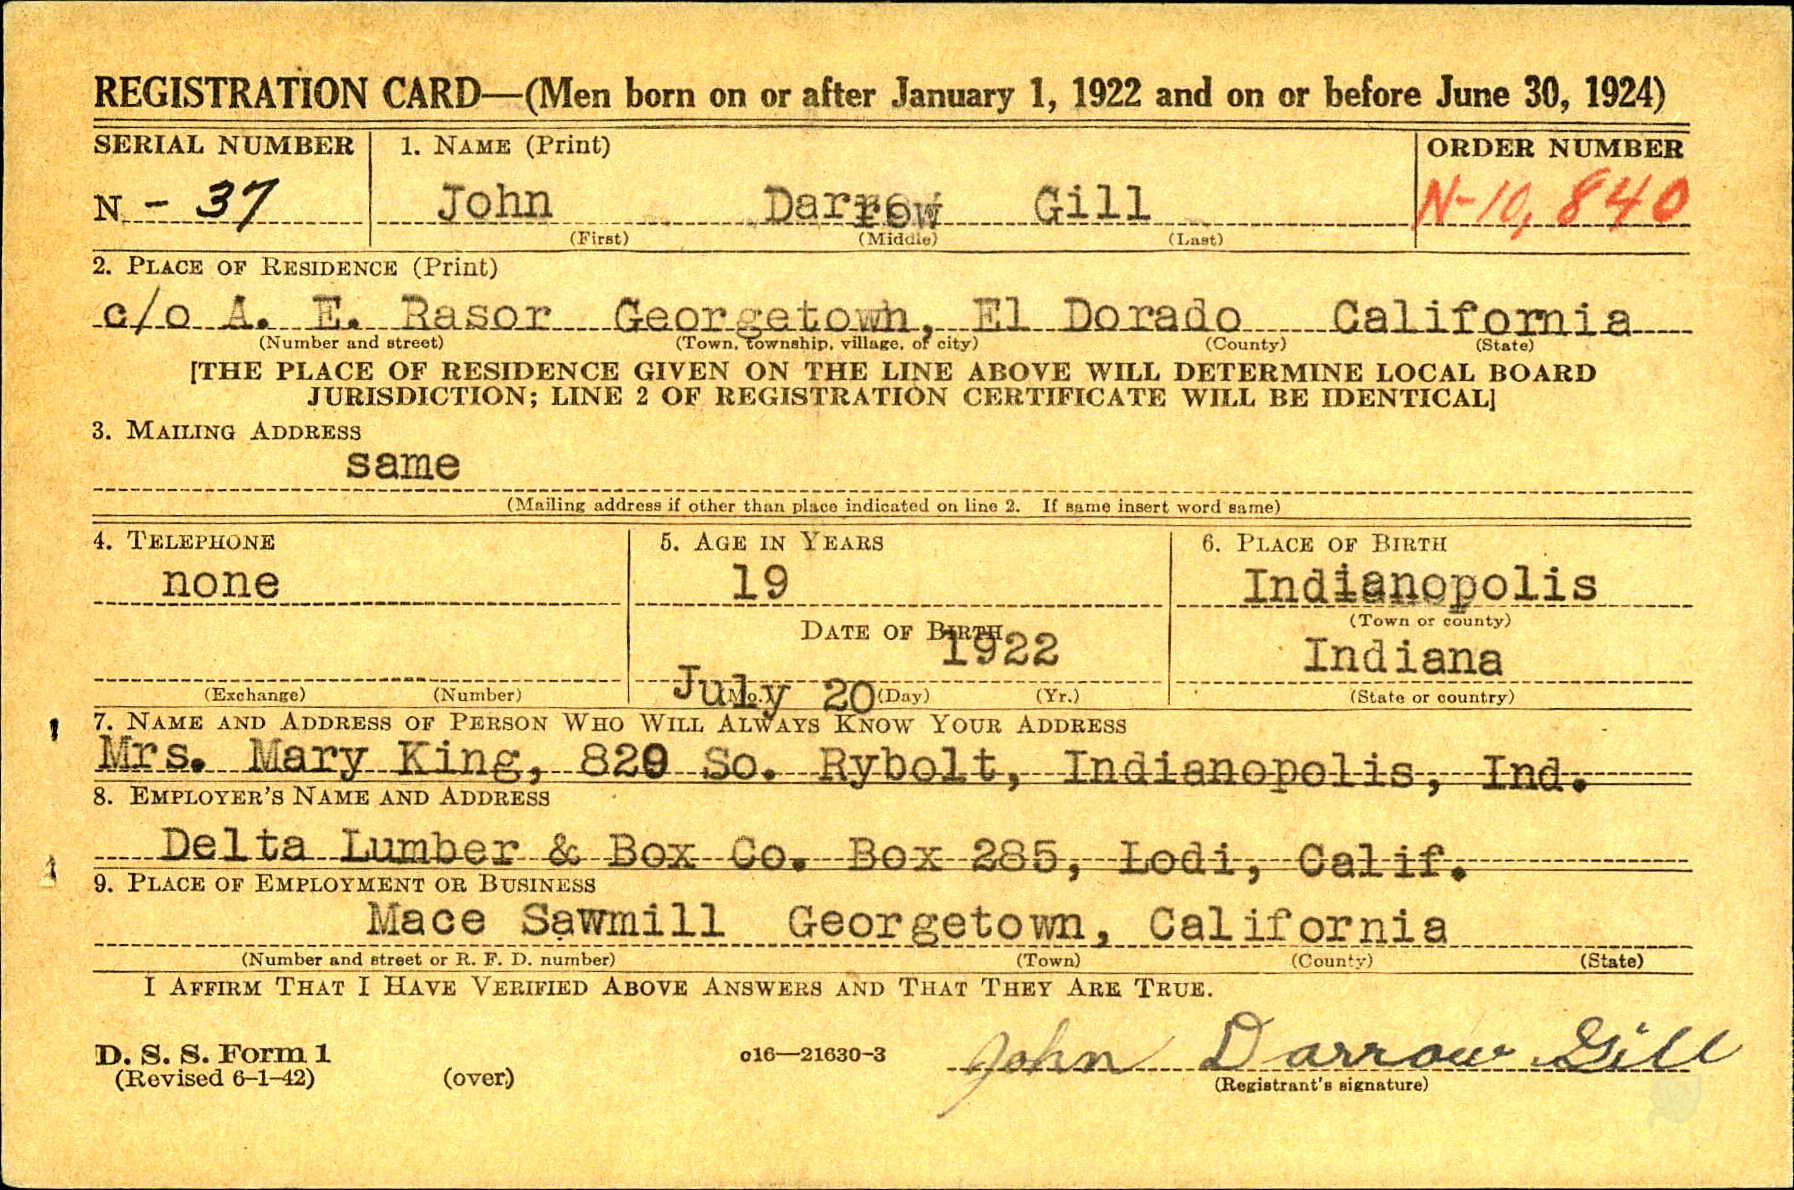 REGISTRATION CARD—(Men born on or after January 1, 1922 and on or before June 30, 1924)
SERIAL NUMBER
1. NAME (Print)
ORDER NUMBER
N - 37
John Darrow Gill
N-10,840
(First) (Middle) (Last)
2. PLACE OF RESIDENCE (Print)
c/o A. E. Rasor Georgetown, El Dorado California
(Number and street) (Town, township, village, or city) (County) (State)
[THE PLACE OF RESIDENCE GIVEN ON THE LINE ABOVE WILL DETERMINE LOCAL BOARD
JURISDICTION; LINE 2 OF REGISTRATION CERTIFICATE WILL BE IDENTICAL]
3. MAILING ADDRESS
same
(Mailing address if other than place indicated on line 2. If same insert word same)
4. TELEPHONE
none
(Exchange) (Number)
5. AGE IN YEARS
19
DATE OF BIRTH
1922
July 20
(Mo.) (Day) (Yr.)
6. PLACE OF BIRTH
Indianopolis
(Town or county)
Indiana
(State or country)
7. NAME AND ADDRESS OF PERSON WHO WILL ALWAYS KNOW YOUR ADDRESS
Mrs. Mary King, 829 So. Rybolt, Indianopolis, Ind.
8. EMPLOYER'S NAME AND ADDRESS
Delta Lumber & Box Co. Box 285, Lodi, Calif.
9. PLACE OF EMPLOYMENT OR BUSINESS
Mace Sawmill Georgetown, California
(Number and street or R. F. D. number) (Town) (County) (State)
I AFFIRM THAT I HAVE VERIFIED ABOVE ANSWERS AND THAT THEY ARE TRUE.
John Darrow Gill
D. S. S. Form 1
(Revised 6-1-42) (over) c16—21630-3 (Registrant's signature)